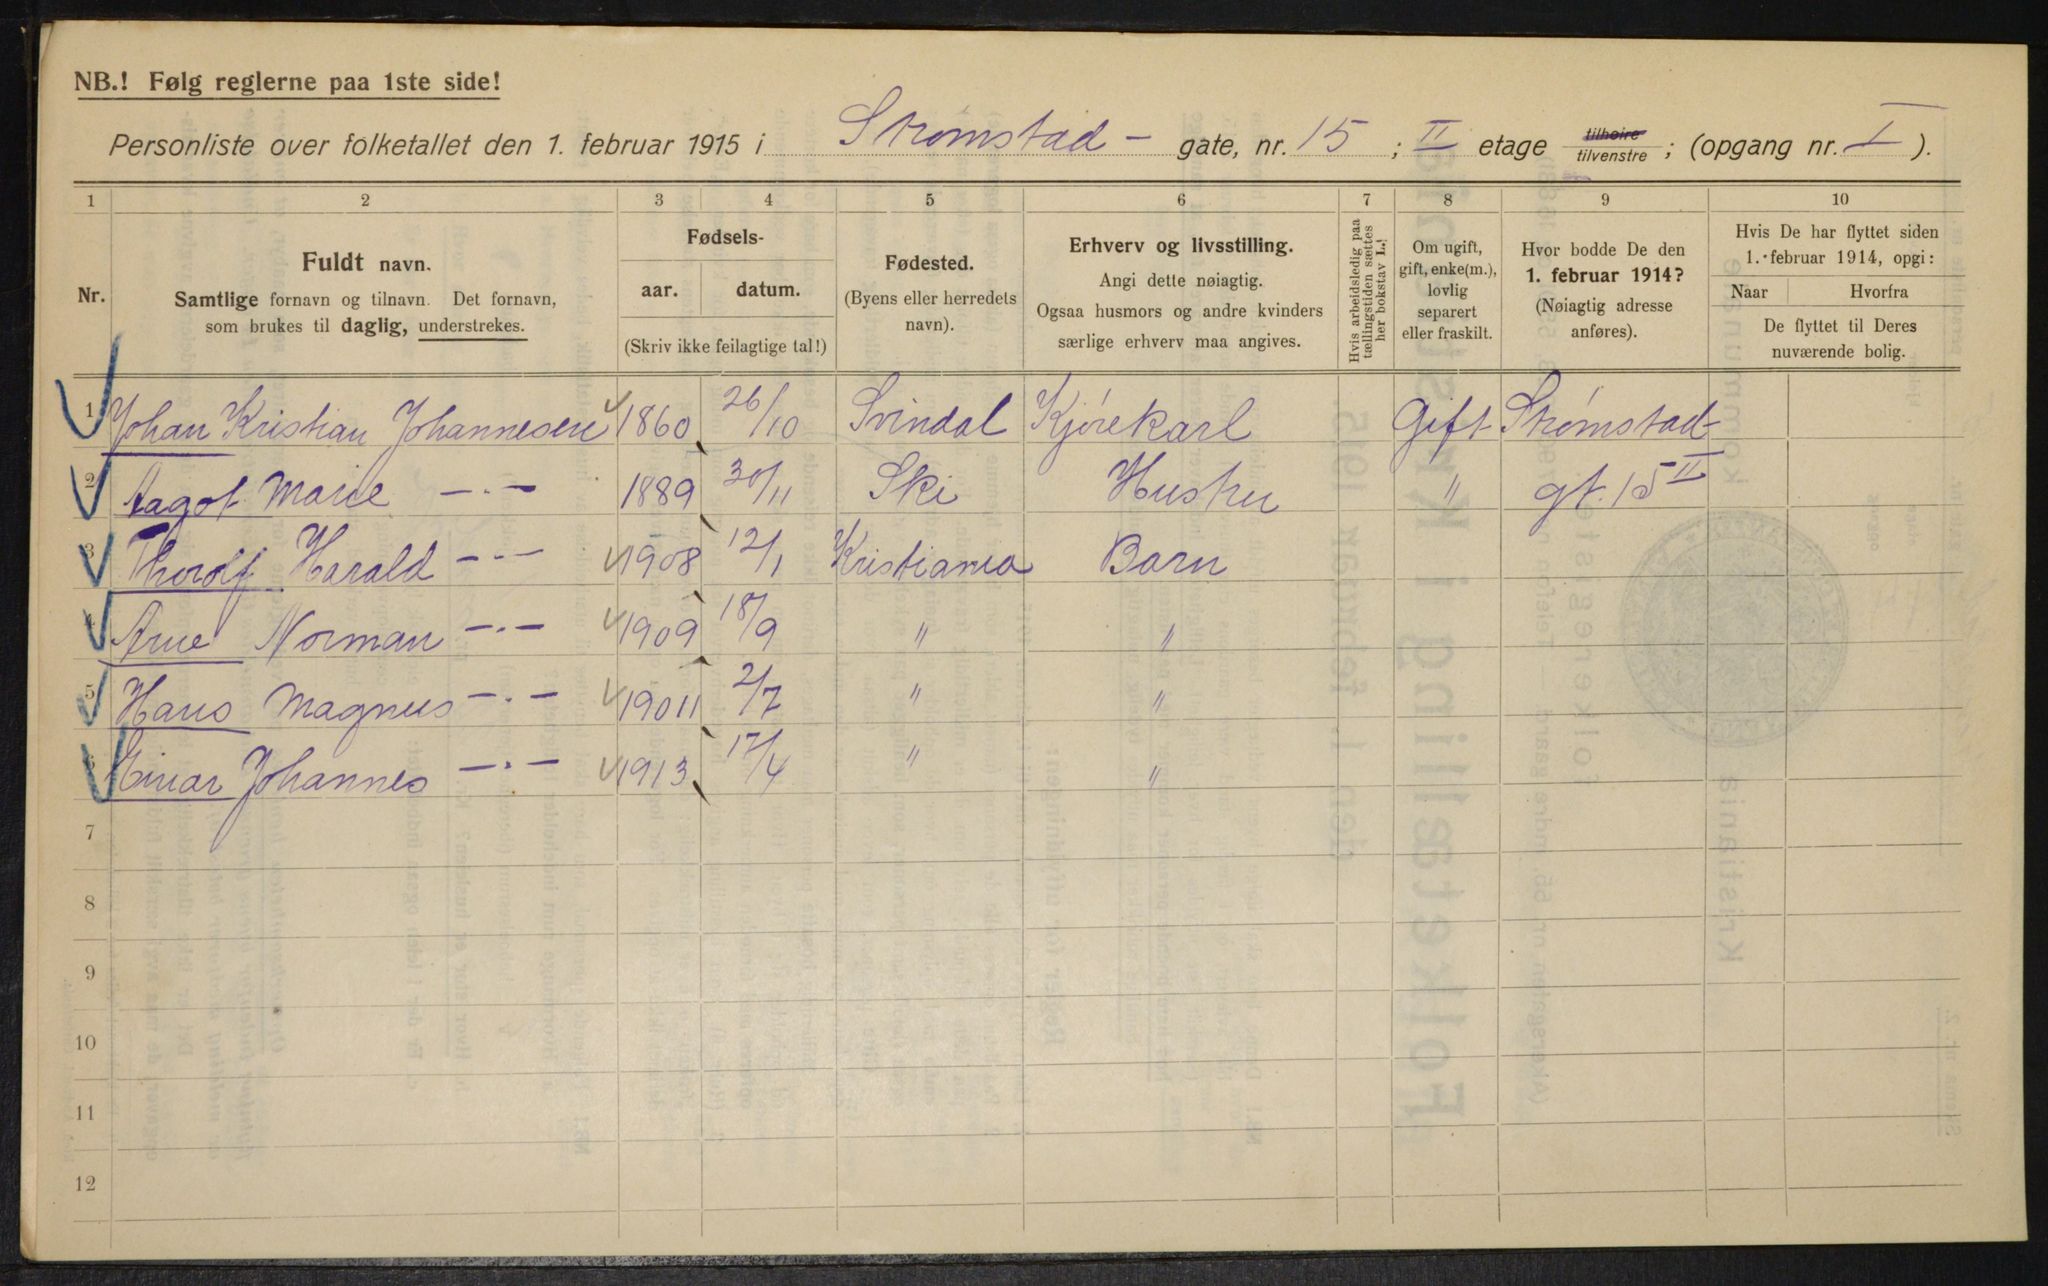 NB.! Følg reglerne paa 1ste side!
Personliste over folketallet den 1. februar 1915 i Strømstad- gate, nr. 15 ; II etage tilhøire tilvenstre ; (opgang nr. I ).
1 2 3 4 5 6 7 8 9 10
Nr.
Fuldt navn.
Samtlige fornavn og tilnavn. Det fornavn,
som brukes til daglig, understrekes.
Fødsels-
aar. datum.
(Skriv ikke feilagtige tal!)
Fødested.
(Byens eller herredets
navn).
Erhverv og livsstilling.
Angi dette nøiagtig.
Ogsaa husmors og andre kvinders
særlige erhverv maa angives.
Hvis arbeidsledig paa
tællingstiden sættes
her bokstav L.!
Om ugift,
gift, enke(m.),
lovlig
separert
eller fraskilt.
Hvor bodde De den
1. februar 1914?
(Nøiagtig adresse
anføres).
Hvis De har flyttet siden
1. februar 1914, opgi:
Naar Hvorfra
De flyttet til Deres
nuværende bolig.
1 Johan Kristian Johannesen 1860 26/10 Svindal Kjørekarl Gift Strømstad-
2 Aagot Marie —·— 1889 30/11 Ski Hustru " gt. 15 II
3 Thorolf Harald —·— 1908 12/1 Kristiania Barn
4 Arne Norman —·— 1909 18/9 " "
5 Hans Magnus —·— 19011 2/7 " "
6 Einar Johannes —·— 1913 17/4 " "
7
8
9
10
11
12